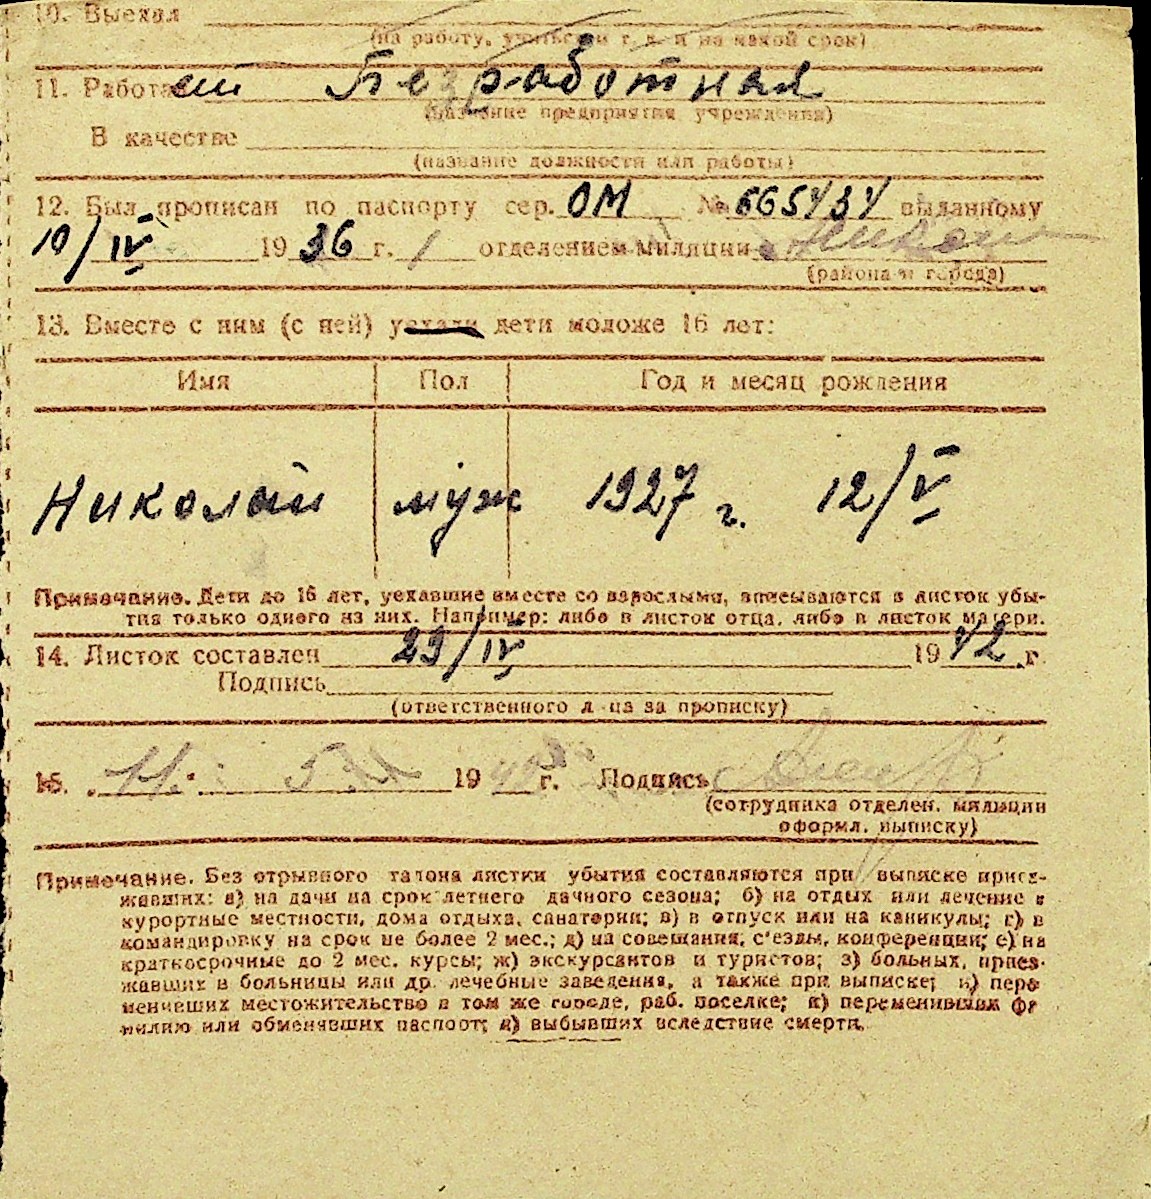 10. Выехал
(на работу, учиться и т. д. и на какой срок)
11. Работает Безработная
(название предприятия учреждения)
В качестве
(название должности или работы)
12. Был прописан по паспорту сер. ОМ № 665434 выданному
10/IV 1936 г. 1 отделением милиции
(района и города)
13. Вместе с ним (с ней) уехали дети моложе 16 лет:
Имя Пол Год и месяц рождения
Николай муж 1927 г. 12/V
Примечание. Дети до 16 лет, уехавшие вместе со взрослыми, вписываются в листок убы-
тия только одного из них. Например: либо в листок отца, либо в листок матери.
14. Листок составлен 29/IV 1942 г.
Подпись
(ответственного л-ца за прописку)
15. 11. 5 19 г. Подпись
(сотрудника отделен. милиции
оформл. выписку)
Примечание. Без отрывного талона листки убытия составляются при выписке приез-
жавших: а) на дачи на срок летнего дачного сезона; б) на отдых или лечение в
курортные местности, дома отдыха, санатории; в) в отпуск или на каникулы; г) в
командировку на срок не более 2 мес.; д) на совещания, с'езды, конференции; е) на
краткосрочные до 2 мес. курсы; ж) экскурсантов и туристов; з) больных, приез-
жавших в больницы или др. лечебные заведения, а также при выписке; и) пере
менивших местожительство в том же городе, раб. поселке; к) переменивших фа
милию или обменявших паспорт; л) выбывших вследствие смерти.